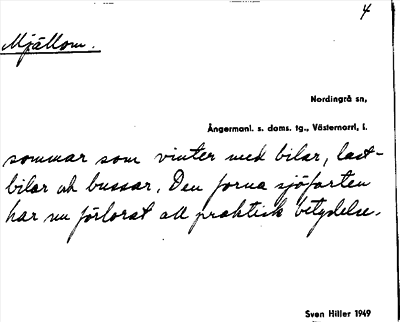 4
Mjällom.
Nordingrå sn,
Ångermanl. s. doms. tg., Västernorrl. l.
sommar som vinter med bilar, last-
bilar och bussar. Den forna sjöfarten
har nu förlorat all praktisk betydelse.
Sven Hiller 1949